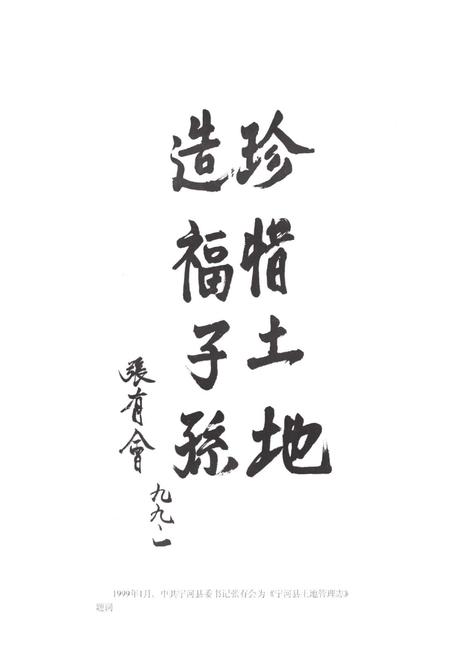 珍惜土地
造福子孫
張有會
九九、一
1999年1月，中共宁河县委书记张有会为《宁河县土地管理志》
题词